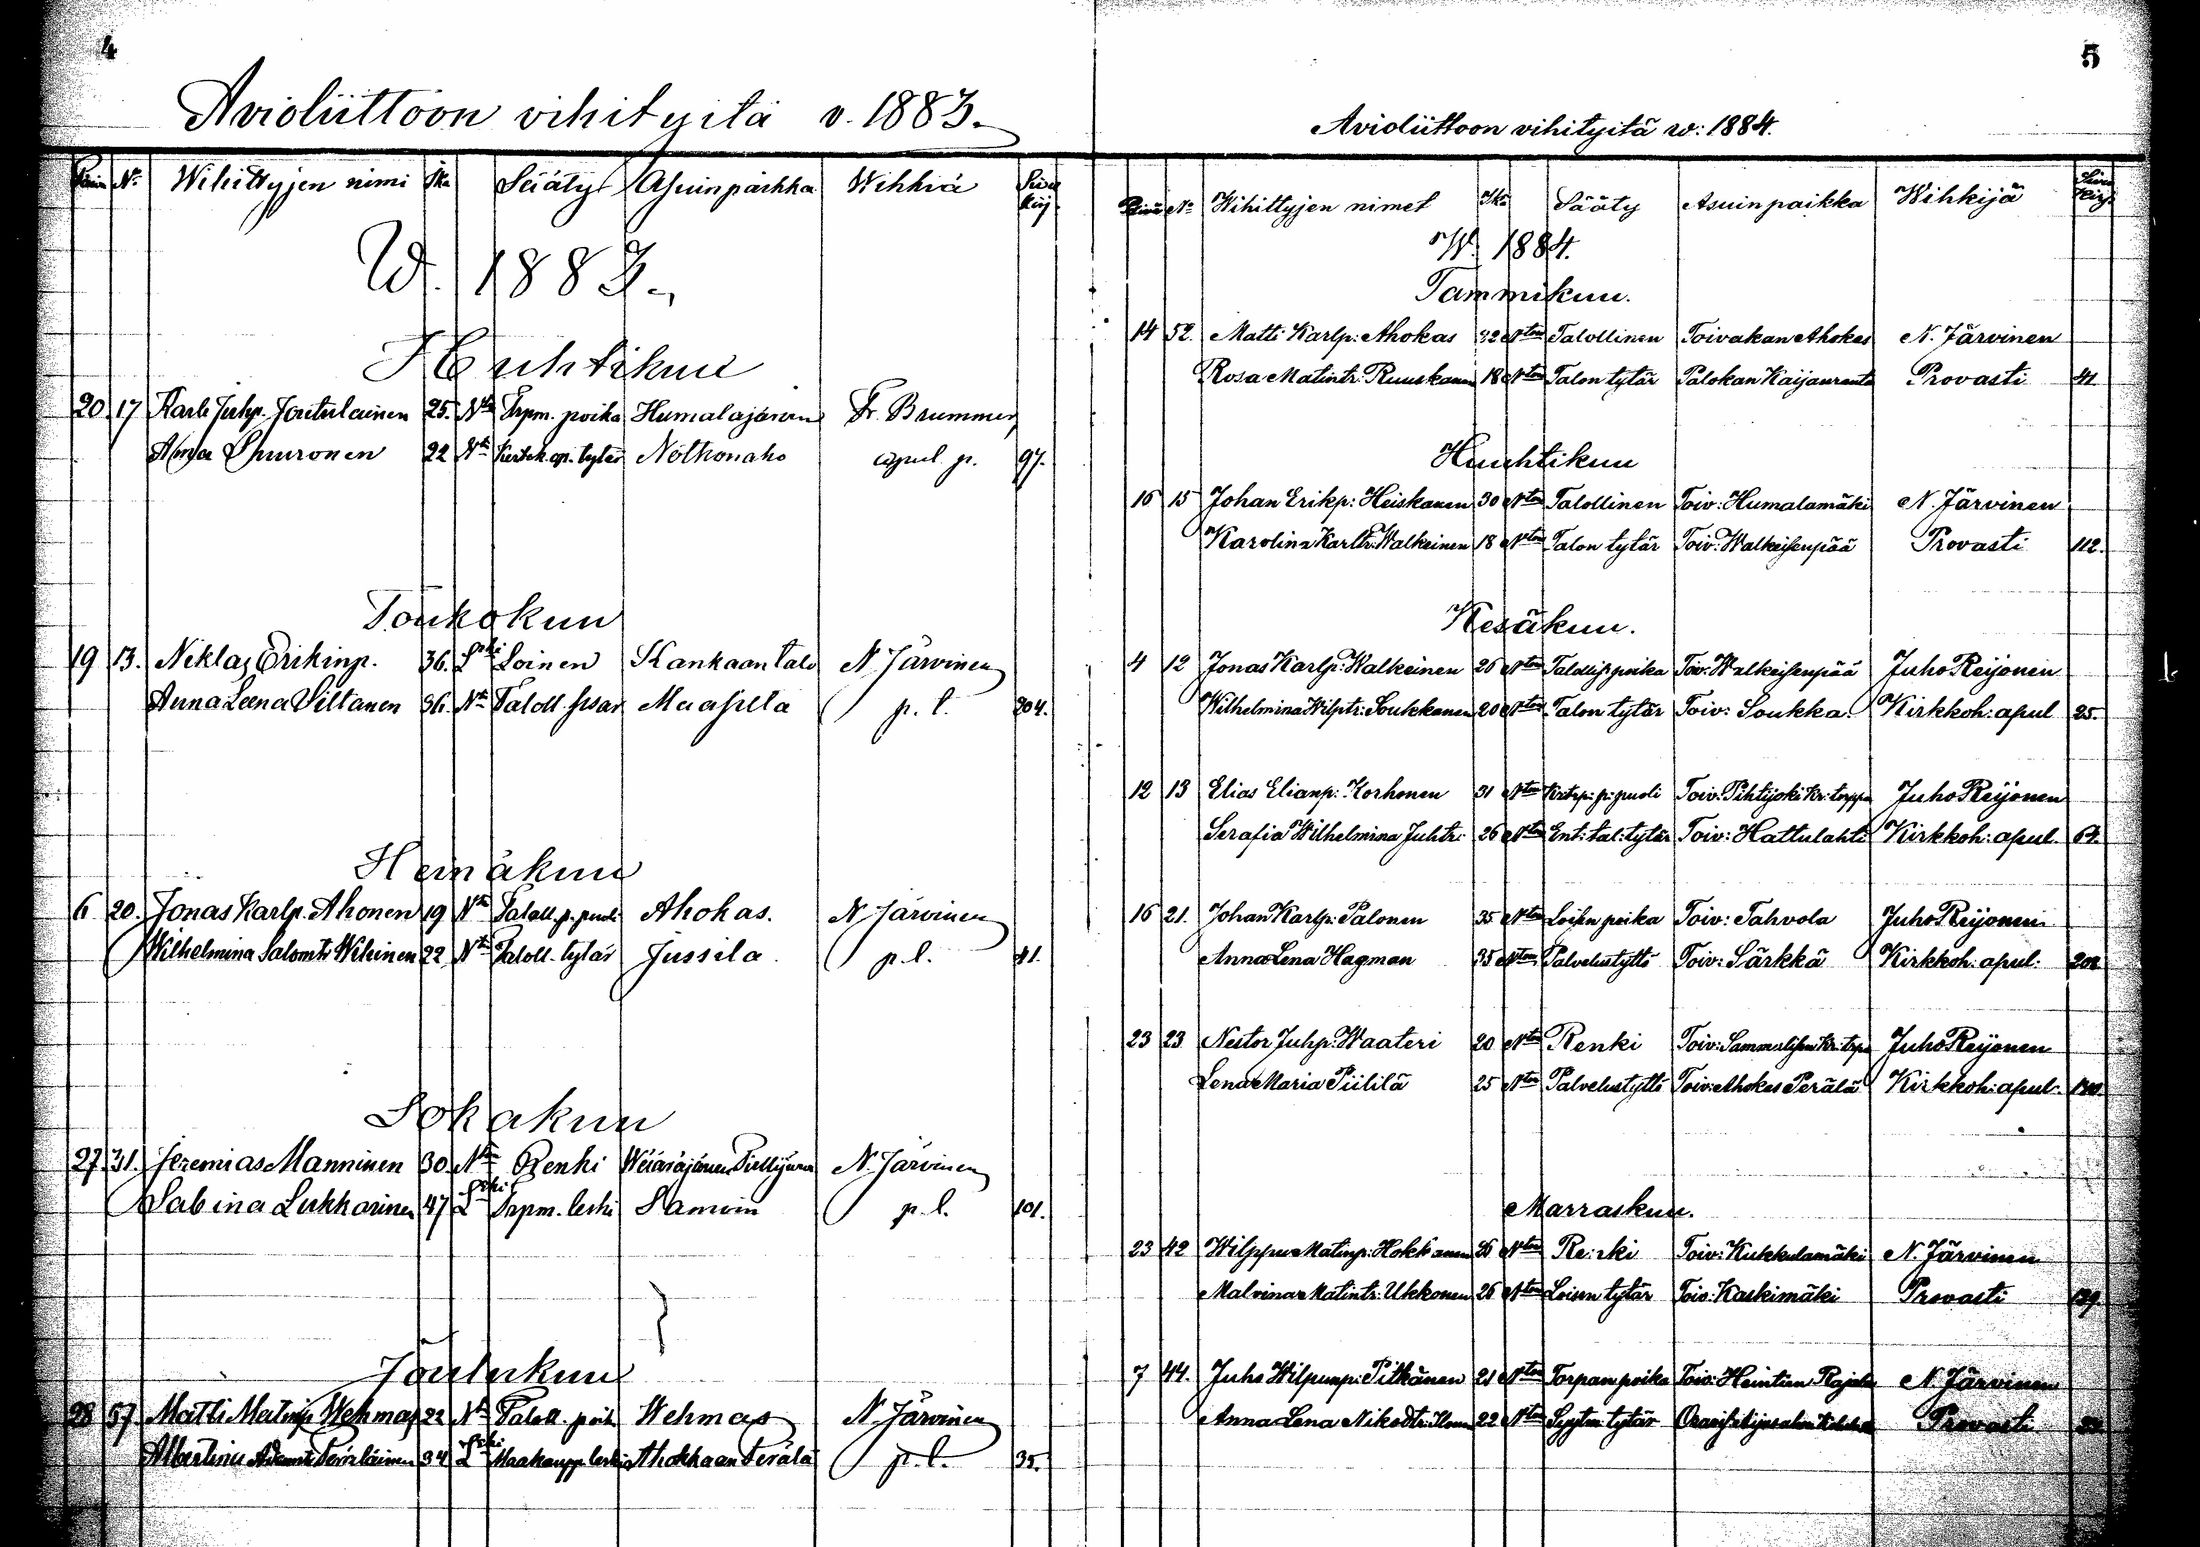 4
Avioliittoon vihityitä v. 1883.
Päivä No Wihittyjen nimi Ikä Sääty Asuinpaikka Wihkiä Sivu kirj.
W. 1883.
Huhtikuu
20 17 Karli Juhp. Joutulainen 25. Ntn Trpm. poika Humalajärven Fr. Brummer
22 Ntn tytär Nötkönaho apul. p. 97.
Toukokuu
19 13. Niklas Erikinp. 36. Lski Loinen Kankaantalo N. Järvinen
Anna Leena Siltanen 36. Ntn Taloll. sisar Maasilla p. l. 204.
Heinäkuu
6 20. Jonas Karlp. Ahonen 19 Ntn Taloll. p. puoli Ahokas. N. Järvinen
Wilhelmina Salomtr 22 Ntn Taloll. tytär Jussila p. l. 41.
Lokakuu
27. 31. Jeremias Manninen 30. Ntn Renki N. Järvinen
Sabina Lukkarinen 47 Lski Trpm. leski p. l. 101.
Joulukuu
28 57. Matti Matinp. Wehmas 22 Ntn Taloll. poika Wehmas N. Järvinen
Albertina 34 Lski Maakaupp. leski Ahokkaan Perälä p. l. 35.
5
Avioliittoon vihityitä w: 1884.
Päivä No Wihittyjen nimet Ikä Sääty Asuinpaikka Wihkijä Sivu Kirj.
W. 1884.
Tammikuu.
14 52. Matti Karlp: Ahokas 32 Nton Talollinen Toivakan Ahokas N. Järvinen
Rosa Matintr. Ruuskanen 18 Nton Talon tytär Palokan Kaijanranta Provasti 41.
Huuhtikuu
16 15 Johan Erikp: Heiskanen 30 Nton Talollinen Toiv: Humalamäki N. Järvinen
Karolina Karltr: Walkeinen 18 Nton Talon tytär Toiv: Walkeisenpää Provasti 112.
Kesäkuu.
4 12 Jonas Karlp: Walkeinen 26 Nton Talollis. poika Toiv: Walkeisenpää Juho Reijonen
Wilhelmina Wilptr: Soukkanen 20 Nton Talon tytär Toiv: Soukka. Kirkkoh: apul 25.
12 13 Elias Elianp: Korhonen 31 Nton Krtrp: p: puoli Toiv: Pihtijoki Kr: torppa Juho Reijonen
Serafia Wilhelmina Juhtr: 26 Nton Ent: tal: tytär Toiv: Hattulahti Kirkkoh: apul. 64.
16 21. Johan Karlp: Palonen 35 Nton Loisen poika Toiv: Tahvola Juho Reijonen
Anna Lena Hagman 35 Nton Palvelustyttö Toiv: Särkkä Kirkkoh: apul:
23 23 Nestor Juhp: Waateri 20 Nton Renki Juho Reijonen
Lena Maria Piililä 25 Nton Palvelustyttö Toiv: Ahokas Perälä Kirkkoh: apul:
Marraskuu.
23 42 Wilppu Matinp: Hokkanen Nton Renki Toiv: Kukkulamäki N. Järvinen
Malvina Matintr: Ukkonen 26 Nton Loisen tytär Toiv: Kaskimäki Provasti 139.
7 44. Juho Wilpunp: Pitkänen 21 Nton Torpan poika Toiv: Heintien Rajala N. Järvinen
Anna Lena 22 Nton tytär Provasti